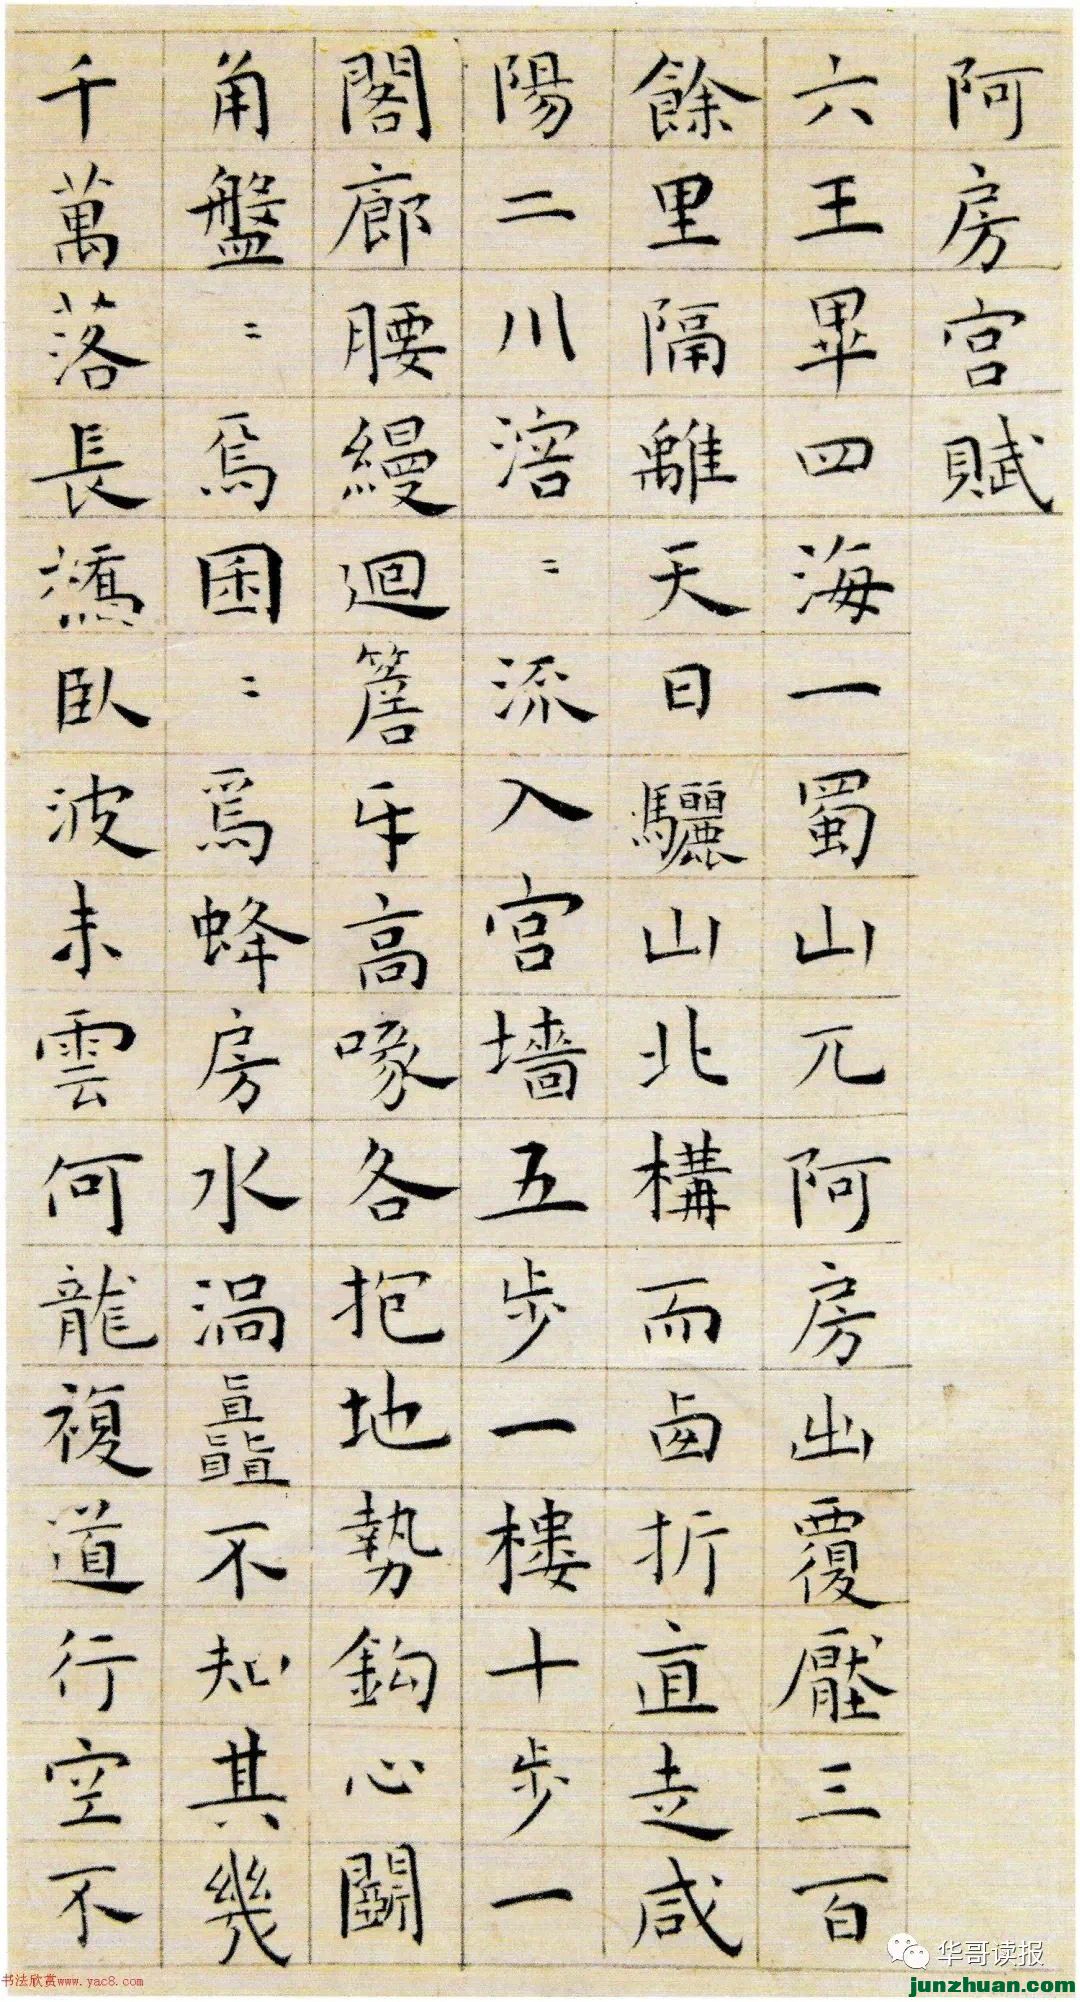 阿房宫賦
六王畢四海一蜀山兀阿房出覆壓三百
餘里隔離天日驪山北構而西折直走咸
陽二川溶〻流入宫墻五步一樓十步一
閣廊腰縵迴簷牙高啄各抱地勢鈎心鬭
角盤〻焉囷〻焉蜂房水渦矗不知其幾
千萬落長橋臥波未雲何龍複道行空不
华哥读报
书法欣赏www.yac8.com
junzhuan.com